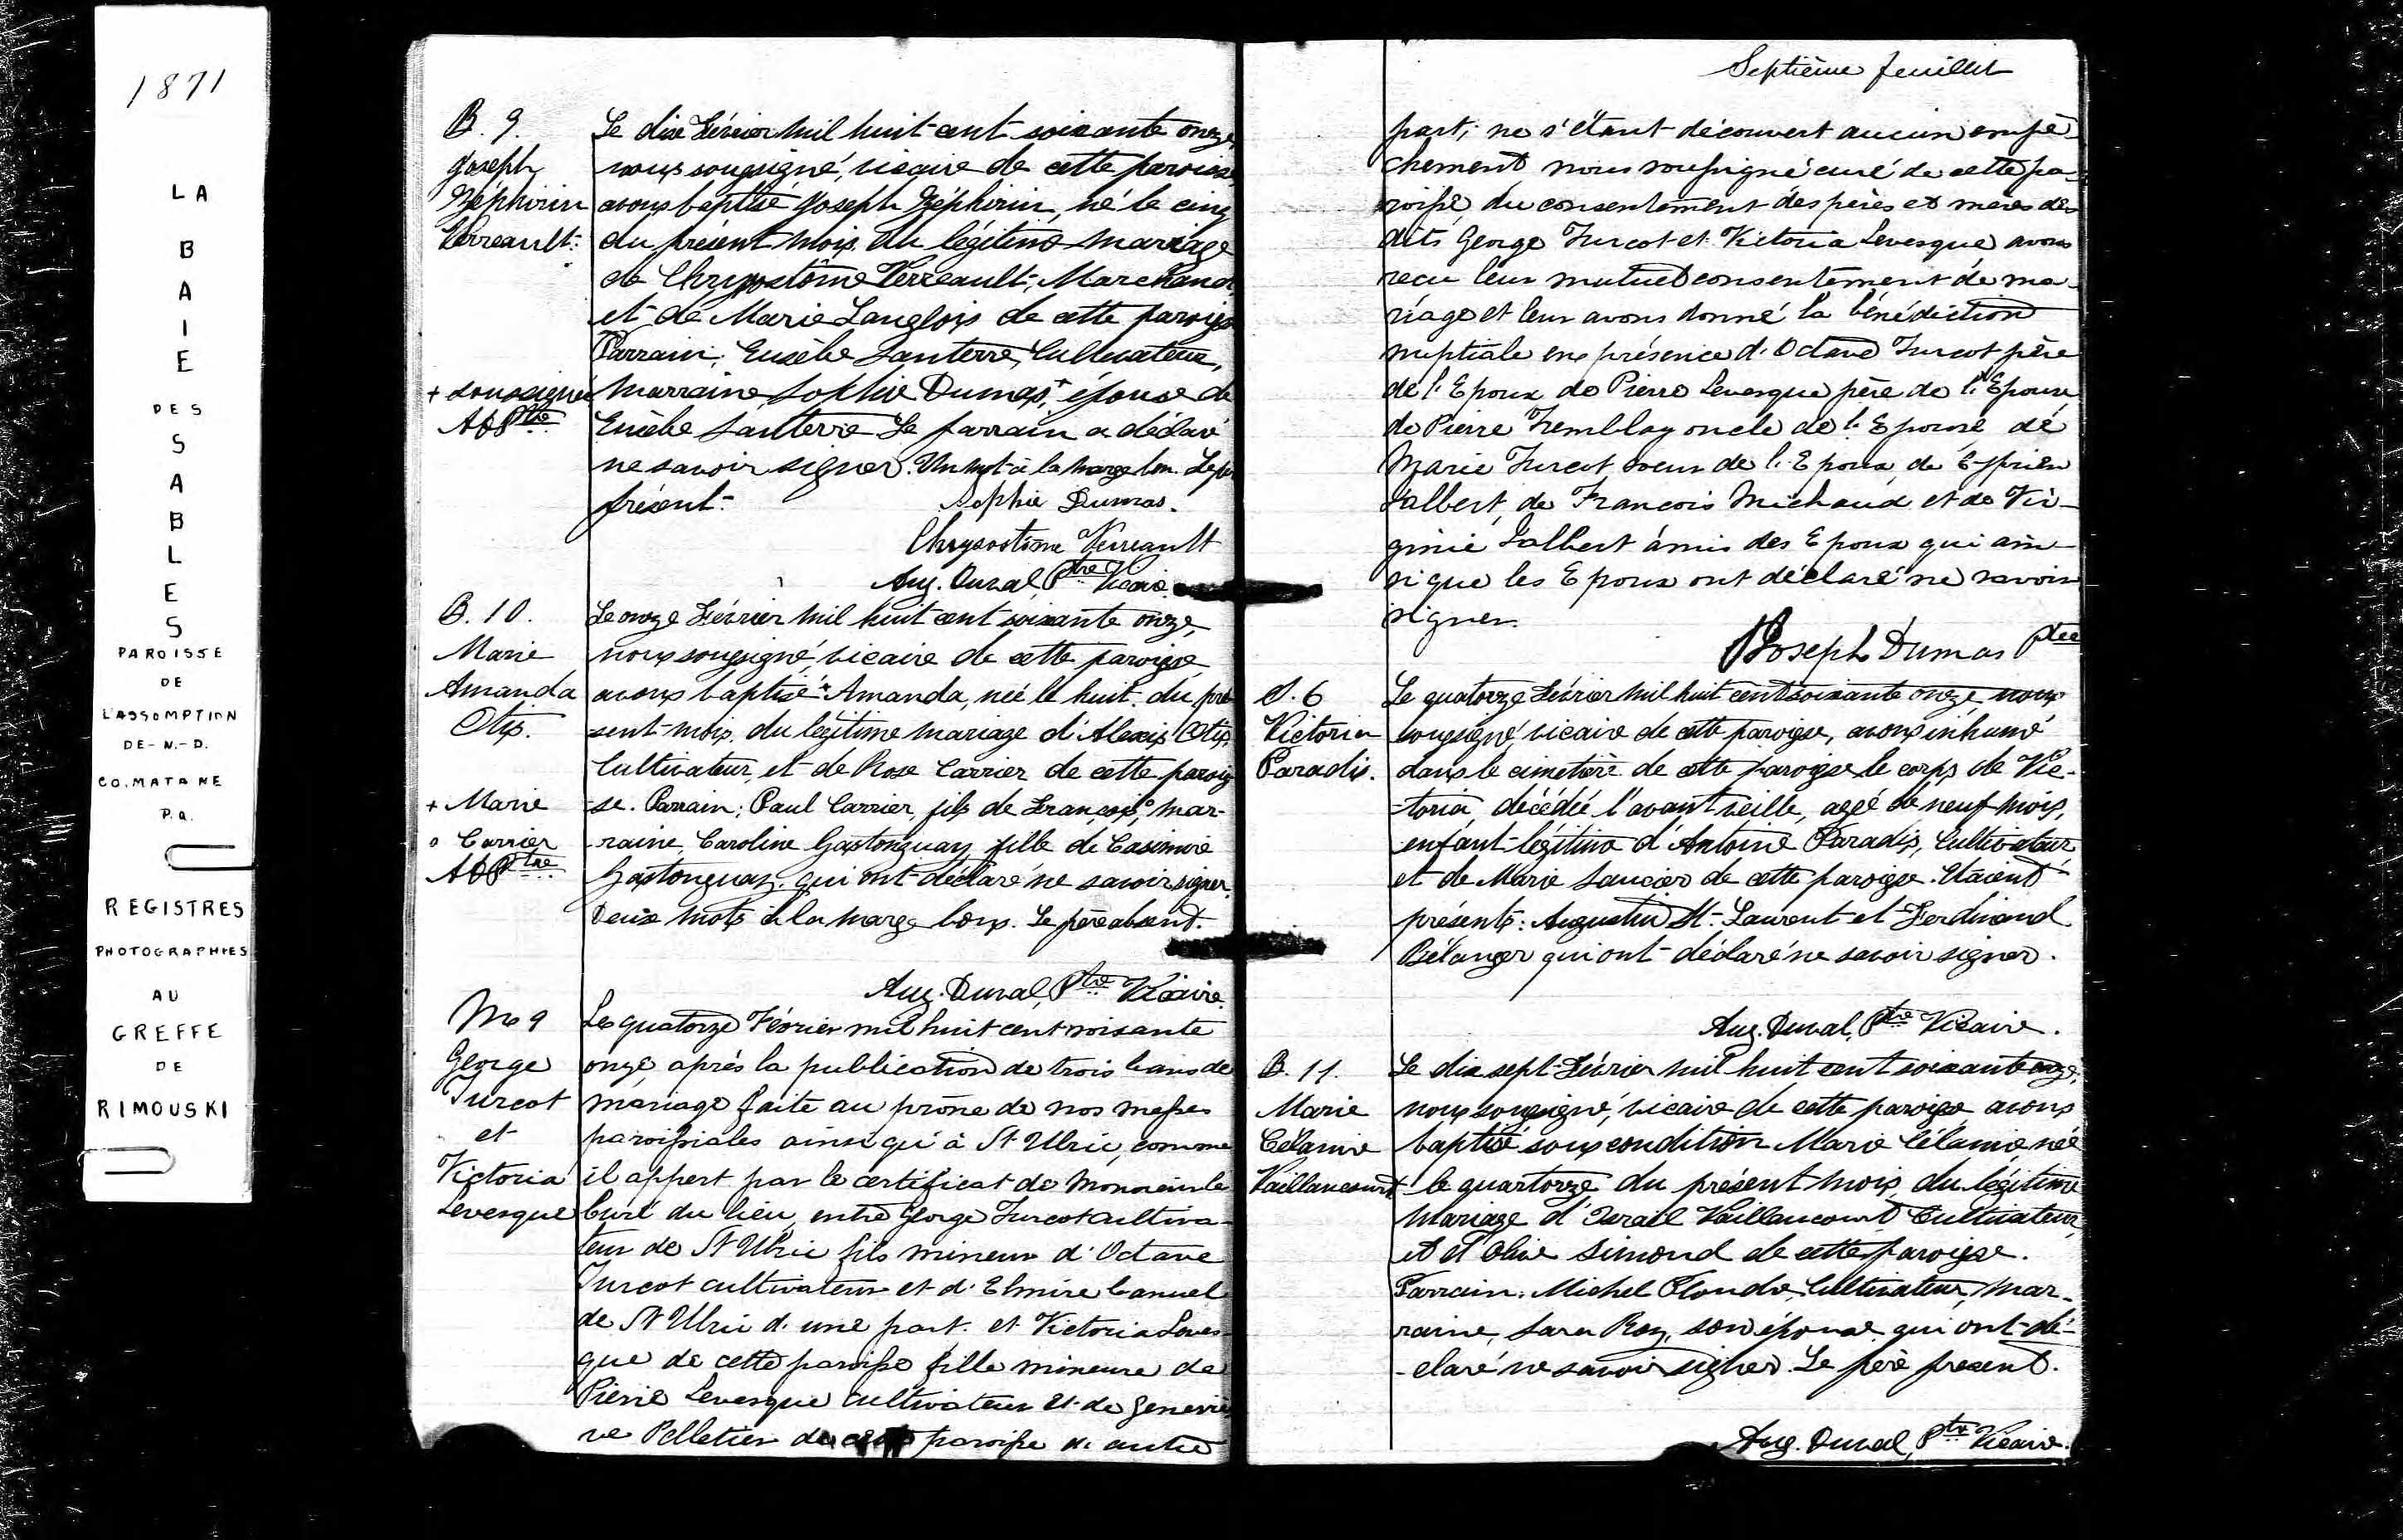 1871
LA
BAIE
DES
SABLES
PAROISSE
DE
L'ASSOMPTION
DE-N.-D.
CO. MATANE
P.Q.
REGISTRES
PHOTOGRAPHIES
AU
GREFFE
DE
RIMOUSKI
B. 9.
Joseph
Zéphirin
Verreault.
+ soussigné
A D Ptre
Le dix Février mil huit cent soixante onze,
nous soussigné, vicaire de cette paroisse
avons baptisé Joseph Zéphirin, né le cinq
du présent mois du légitime mariage
de Chrysostôme Verreault, Marchand
et de Marie Langlois de cette paroisse
Parrain, Eusèbe Santerre, Cultivateur,
Marraine, Sophie Dumas,+ épouse de
Eusèbe Santerre Le parrain a déclaré
ne savoir signer. Un mot à la marge bon. Le père
présent.
Sophie Dumas.
Chrysostôme Verreault
Aug. Duval, Ptre Vicaire.
B. 10.
Marie
Amanda
Otis.
+ Marie
o Carrier
A D Ptre
Le onze Février mil huit cent soixante onze,
nous soussigné, vicaire de cette paroisse
avons baptisé + Amanda, née le huit du pré
sent mois du légitime mariage d'Alexis Otis
Cultivateur, et de Rose Carrier de cette parois
se. Parrain; Paul Carrier, fils de François,o mar-
raine, Caroline Gastonguay fille de Casimire
Gastonguay. qui ont déclaré ne savoir signer.
Deux mots à la marge bons. Le père absent.
Aug. Duval, Ptre Vicaire
M 9
George
Turcot
et
Victoria
Levesque
Le quatorze Février mil huit cent soixante
onze, après la publication de trois bans de
mariage faite au prône de nos messes
paroissiales ainsi qu'à St Ulric, comme
il appert par le certificat de Monsieur le
Curé du lieu, entre George Turcot cultiva-
teur de St Ulric fils mineur d'Octave
Turcot cultivateur et d'Elmire Canuel
de St Ulric d'une part. et Victoria Leves-
que de cette paroisse fille mineure de
Pierre Levesque cultivateur et de Geneviè
ve Pelletier de cette paroisse d'autre
Septième feuillet
part; ne s'étant découvert aucun empê-
chement nous soussigné curé de cette pa-
roisse, du consentement des pères et mères des
dits George Turcot et Victoria Levesque avons
reçu leur mutuel consentement de ma-
riage et leur avons donné la bénédiction
nuptiale en présence d'Octave Turcot père
de l'Epoux de Pierre Levesque père de l'Epouse,
de Pierre Tremblay oncle de l'Epouse de
Marie Turcot soeur de l'Epoux, de Cyprien
Jalbert, de François Michaud et de Vir-
ginie Jalbert amis des Epoux qui ain-
si que les Epoux ont déclaré ne savoir
signer.
Joseph Dumas Ptre
S. 6
Victoria
Paradis.
Le quatorze Février mil huit cent soixante onze, nous
soussigné, vicaire de cette paroisse, avons inhumé
dans le cimetière de cette paroisse le corps de Vic-
-toria, décédée l'avant veille, agée de neuf mois,
enfant légitime d'Antoine Paradis, Cultivateur
et de Marie Saucier de cette paroisse. Etaient
présents: Augustin St-Laurent et Ferdinand
Bélanger qui ont déclaré ne savoir signer.
Aug. Duval, Ptre Vicaire.
B. 11.
Marie
Célamie
Vaillancourt
Le dix sept Février mil huit cent soixante onze,
nous soussigné, vicaire de cette paroisse avons
baptisé sous condition Marie Célamie, née
le quartorze du présent mois, du légitime
Mariage d'Israël Vaillancourt Cultivateur,
et d'Olive Simond de cette paroisse.
Parrain, Michel Plondre, Cultivateur, Mar-
raine, Sara Roy, son épouse, qui ont dé-
-claré ne savoir signer. Le père présent.
Aug. Duval, Ptre Vicaire.